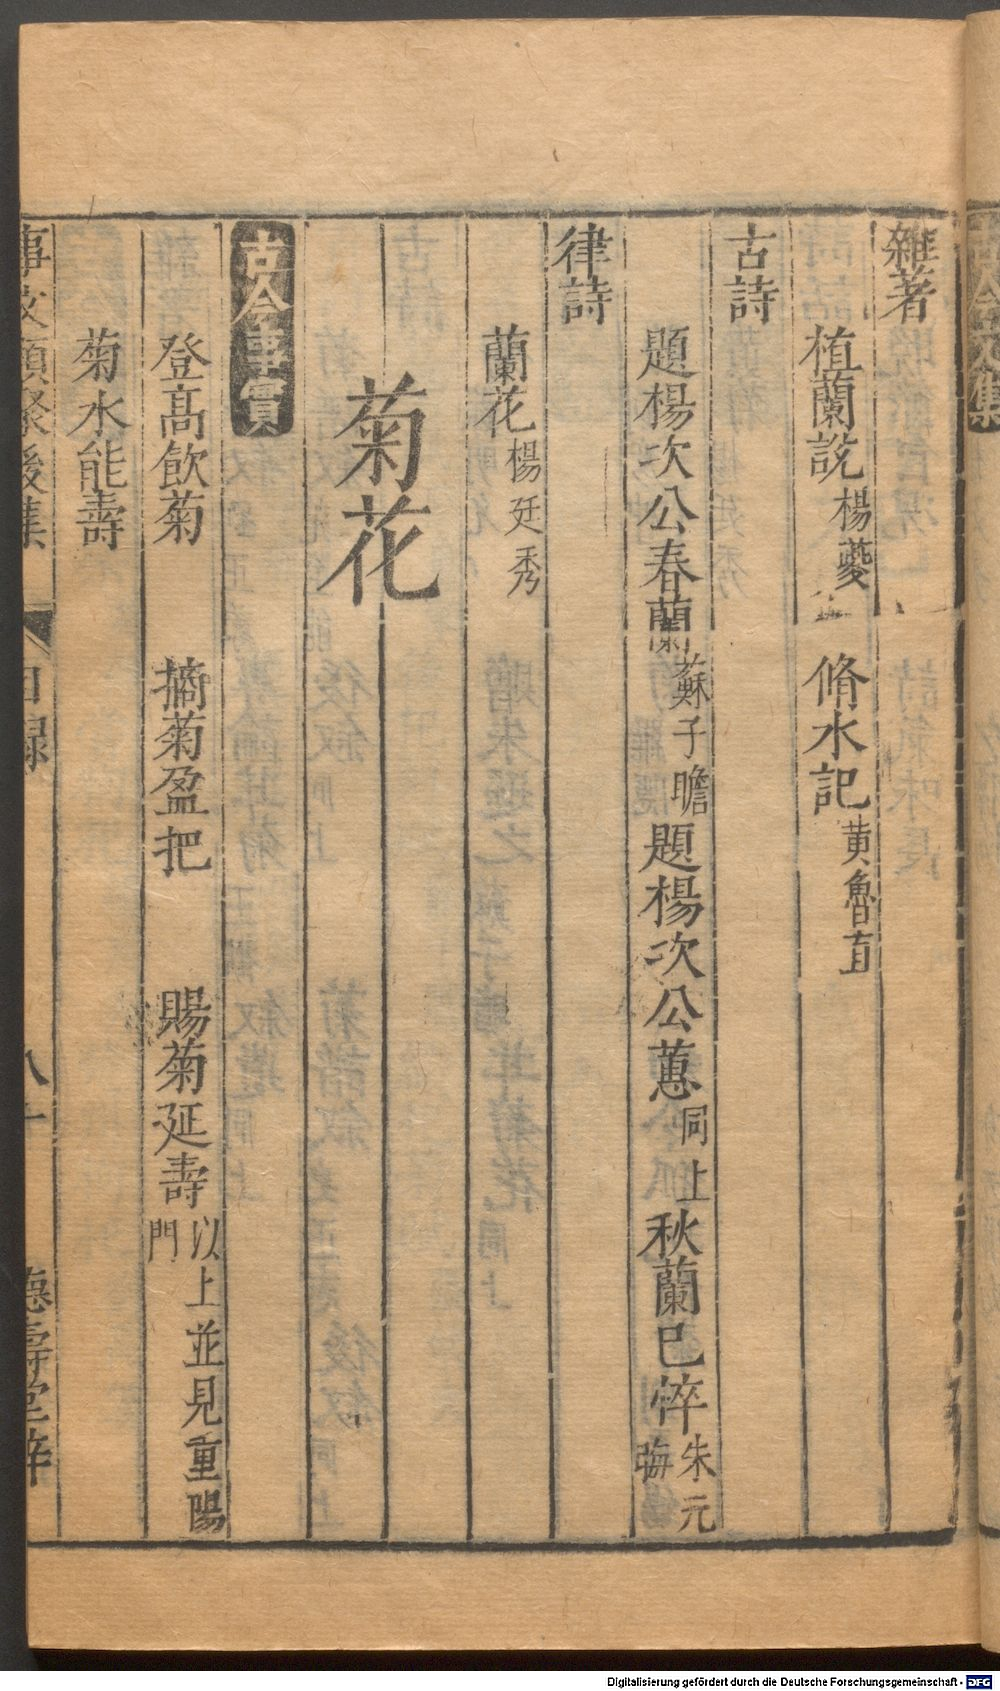 古今文集
雜著
植蘭說 楊夔 脩水記 黄魯直
古詩
題楊次公春蘭 蘇子瞻 題楊次公蕙 同上 秋蘭已悴 朱元晦
律詩
蘭花 楊廷秀
菊花
古今事實
登高飲菊 摘菊盈把 賜菊延壽 以上並見重陽門
菊水能壽
事文類聚後集 目録 八十 德壽堂梓
Digitalisierung gefördert durch die Deutsche Forschungsgemeinschaft - DFG